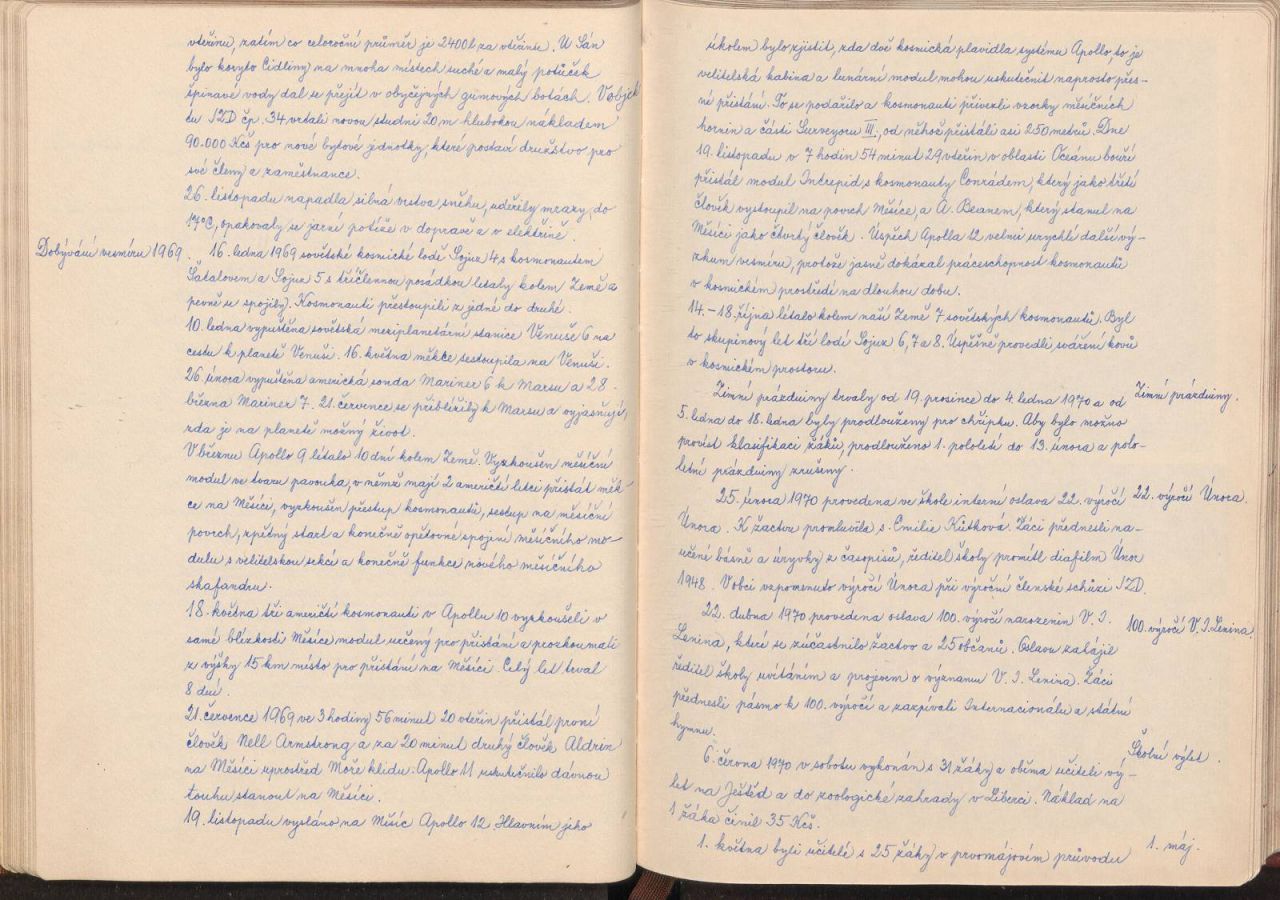 vteřinu, zatím co celoroční průměr je 2400 l za vteřinu. U Sán
bylo koryto Cidliny na mnoha místech suché a malý potůček
špinavé vody dal se přejít v obyčejných gumových botách. V objek
tu JZD čp. 34 vrtali novou studni 20 m hlubokou nákladem
90.000 Kčs pro nové bytové jednotky, které postaví družstvo pro
své členy a zaměstnance.
26. listopadu napadla silná vrstva sněhu, udeřily mrazy do
17°C, opakovaly se jarní potíže v dopravě a v elektřině.
Dobývání vesmíru 1969. 16. ledna 1969 sovětské kosmické lodě Sojuz 4 s kosmonautem
Šatalovem a Sojuz 5 s tříčlennou posádkou létaly kolem Země a
pevně se spojily. Kosmonauti přestoupili z jedné do druhé.
10. ledna vypuštěna sovětská meziplanetární stanice Venuše 6 na
cestu k planetě Venuši. 16. května měkce sestoupila na Venuši.
26. února vypuštěna americká sonda Mariner 6 k Marsu a 28.
března Mariner 7. 21. července se přiblížily k Marsu a vyjasňují,
zda je na planetě možný život.
V březnu Apollo 9 létalo 10 dní kolem Země. Vyzkoušen měsíční
modul ve tvaru pavouka, v němž mají 2 američtí letci přistát měk-
ce na Měsíci, vyzkoušen přestup kosmonautů, sestup na měsíční
povrch, zpětný start a konečně opětovné spojení měsíčního mo-
dulu s velitelskou sekcí a konečně funkce nového měsíčního
skafandru.
18. května tři američtí kosmonauti v Apollu 10 vyzkoušeli v
samé blízkosti Měsíce modul určený pro přistání a prozkoumali
z výšky 15 km místo pro přistání na Měsíci. Celý let trval
8 dní.
21. července 1969 ve 3 hodiny 56 minut 20 vteřin přistál první
člověk Nell Armstrong a za 20 minut druhý člověk Aldrin
na Měsíci uprostřed Moře klidu. Apollo 11 uskutečnilo dávnou
touhu stanout na Měsíci.
19. listopadu vysláno na Měsíc Apollo 12. Hlavním jeho
úkolem bylo zjistit, zda dvě kosmická plavidla systému Apollo, to je
velitelská kabina a lunární modul mohou uskutečnit naprosto přes-
né přistání. To se podařilo a kosmonauti přivezli vzorky měsíčních
hornin a části Surveyoru III., od něhož přistáli asi 250 metrů. Dne
19. listopadu v 7 hodin 54 minut 29 vteřin v oblasti Oceánu bouří
přistál modul Intrepid s kosmonauty Conradem, který jako třetí
člověk vystoupil na povrch Měsíce, a A. Beanem, který stanul na
Měsíci jako čtvrtý člověk. Úspěch Apolla 12 velmi urychlí další vý-
zkum vesmíru, protože jasně dokázal práceschopnost kosmonautů
v kosmickém prostředí na dlouhou dobu.
14. – 18. října létalo kolem naší Země 7 sovětských kosmonautů. Byl
to skupinový let tří lodí Sojuz 6, 7 a 8. Úspěšně provedli sváření kovů
v kosmickém prostoru.
Zimní prázdniny trvaly od 19. prosince do 4 ledna 1970 a od Zimní prázdniny.
5. ledna do 18. ledna byly prodlouženy pro chřipku. Aby bylo možno
provést klasifikaci žáků, prodlouženo 1. pololetí do 13. února a polo-
letní prázdniny zrušeny.
25. února 1970 provedena ve škole interní oslava 22. výročí 22. výročí Února.
Února. K žactvu promluvila s. Emilie Kůtková. Žáci přednesli na-
učené básně a úryvky z časopisů, ředitel školy promítl diafilm Únor
1948. V obci vzpomenuto výročí Února při výroční členské schůzi JZD.
22. dubna 1970 provedena oslava 100. výročí narozenin V. I. 100. výročí V. I. Lenina.
Lenina, které se zúčastnilo žactvo a 25 občanů. Oslavu zahájil
ředitel školy uvítáním a projevem o významu V. I. Lenina. Žáci
přednesli pásmo k 100. výročí a zazpívali Internacionálu a státní
hymnu.
Školní výlet.
6. června 1970 v sobotu vykonán s 31 žáky a oběma učiteli vý-
let na Ještěd a do zoologické zahrady v Liberci. Náklad na
1 žáka činil 35 Kčs.
1. května byli učitelé s 25 žáky v prvomájovém průvodu 1. máj.